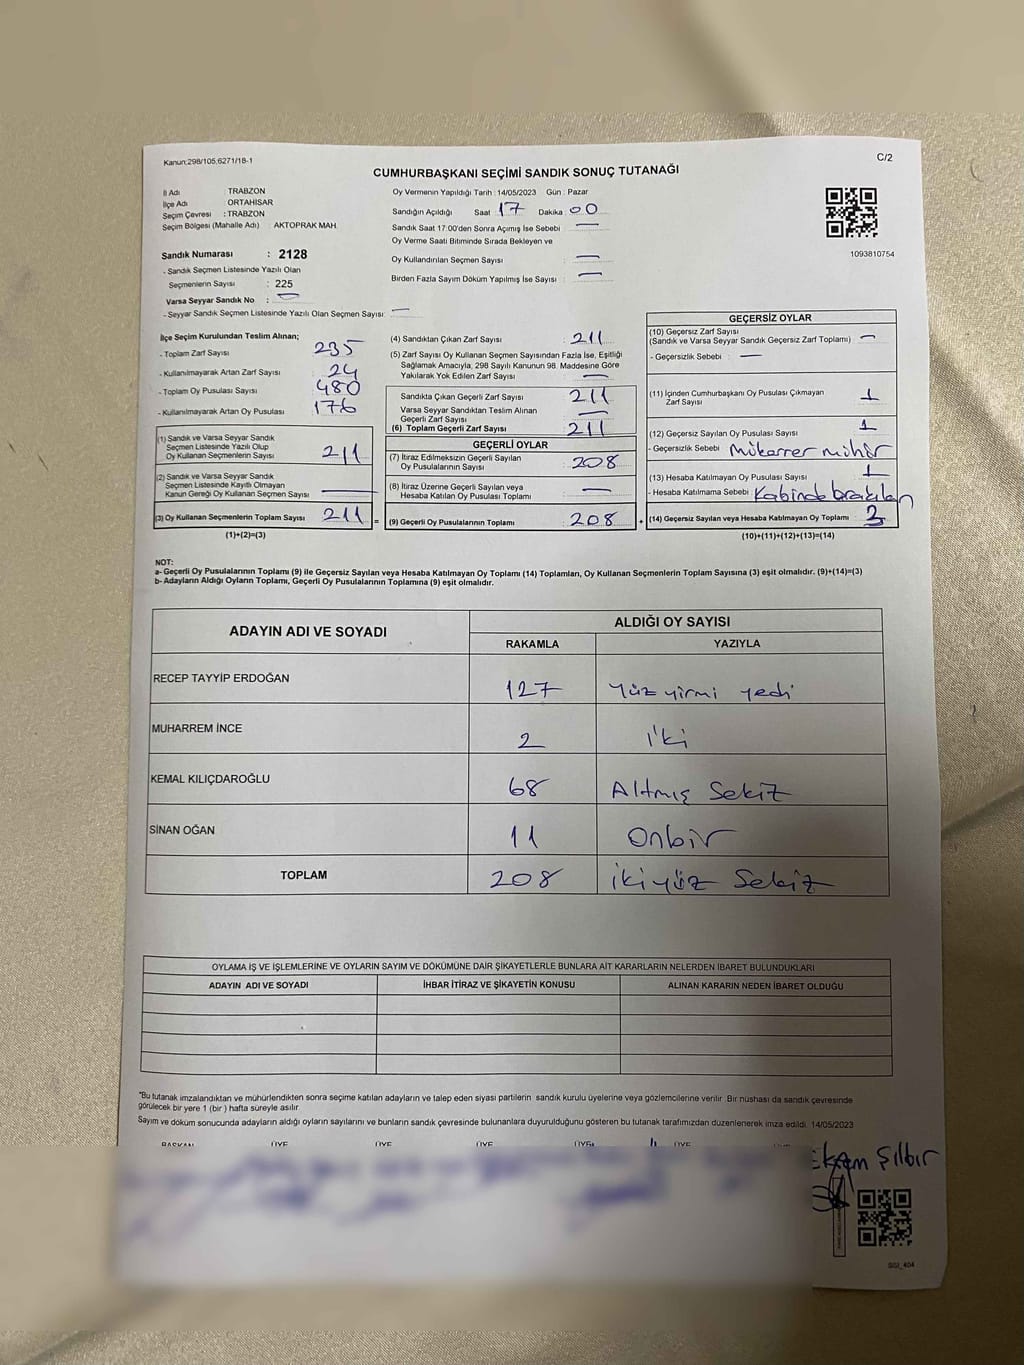 Kanun:298/105,6271/18-1
C/2
CUMHURBAŞKANI SEÇİMİ SANDIK SONUÇ TUTANAĞI
İl Adı : TRABZON
İlçe Adı : ORTAHİSAR
Seçim Çevresi : TRABZON
Seçim Bölgesi (Mahalle Adı) : AKTOPRAK MAH.
Sandık Numarası : 2128
- Sandık Seçmen Listesinde Yazılı Olan
Seçmenlerin Sayısı : 225
Varsa Seyyar Sandık No : —
- Seyyar Sandık Seçmen Listesinde Yazılı Olan Seçmen Sayısı: —
Oy Vermenin Yapıldığı Tarih : 14/05/2023 Gün : Pazar
Sandığın Açıldığı Saat 17 Dakika 00
Sandık Saat 17:00'den Sonra Açımış İse Sebebi : —
Oy Verme Saati Bitiminde Sırada Bekleyen ve
Oy Kullandırılan Seçmen Sayısı : —
Birden Fazla Sayım Döküm Yapılmış İse Sayısı : —
1093810754
İlçe Seçim Kurulundan Teslim Alınan;
- Toplam Zarf Sayısı 235
- Kullanılmayarak Artan Zarf Sayısı 24
- Toplam Oy Pusulası Sayısı 480
- Kullanılmayarak Artan Oy Pusulası 176
(1) Sandık ve Varsa Seyyar Sandık
Seçmen Listesinde Yazılı Olup
Oy Kullanan Seçmenlerin Sayısı 211
(2) Sandık ve Varsa Seyyar Sandık
Seçmen Listesinde Kayıtlı Olmayan
Kanun Gereği Oy Kullanan Seçmen Sayısı —
(3) Oy Kullanan Seçmenlerin Toplam Sayısı 211 =
(1)+(2)=(3)
(4) Sandıktan Çıkan Zarf Sayısı 211
(5) Zarf Sayısı Oy Kullanan Seçmen Sayısından Fazla İse, Eşitliği
Sağlamak Amacıyla, 298 Sayılı Kanunun 98. Maddesine Göre
Yakılarak Yok Edilen Zarf Sayısı —
Sandıkta Çıkan Geçerli Zarf Sayısı 211
Varsa Seyyar Sandıktan Teslim Alınan
Geçerli Zarf Sayısı —
(6) Toplam Geçerli Zarf Sayısı 211
GEÇERLİ OYLAR
(7) İtiraz Edilmeksizin Geçerli Sayılan
Oy Pusulalarının Sayısı 208
(8) İtiraz Üzerine Geçerli Sayılan veya
Hesaba Katılan Oy Pusulası Toplamı —
(9) Geçerli Oy Pusulalarının Toplamı 208 +
GEÇERSİZ OYLAR
(10) Geçersiz Zarf Sayısı
(Sandık ve Varsa Seyyar Sandık Geçersiz Zarf Toplamı) —
- Geçersizlik Sebebi : —
(11) İçinden Cumhurbaşkanı Oy Pusulası Çıkmayan
Zarf Sayısı 1
(12) Geçersiz Sayılan Oy Pusulası Sayısı 1
- Geçersizlik Sebebi : Mükarrer mühür
(13) Hesaba Katılmayan Oy Pusulası Sayısı 1
- Hesaba Katılmama Sebebi : Kabinde bırakılan
(14) Geçersiz Sayılan veya Hesaba Katılmayan Oy Toplamı 3
(10)+(11)+(12)+(13)=(14)
NOT:
a- Geçerli Oy Pusulalarının Toplamı (9) ile Geçersiz Sayılan veya Hesaba Katılmayan Oy Toplamı (14) Toplamları, Oy Kullanan Seçmenlerin Toplam Sayısına (3) eşit olmalıdır. (9)+(14)=(3)
b- Adayların Aldığı Oyların Toplamı, Geçerli Oy Pusulalarının Toplamına (9) eşit olmalıdır.
ADAYIN ADI VE SOYADI
ALDIĞI OY SAYISI
RAKAMLA YAZIYLA
RECEP TAYYİP ERDOĞAN 127 Yüz yirmi yedi
MUHARREM İNCE 2 iki
KEMAL KILIÇDAROĞLU 68 Altmış Sekiz
SİNAN OĞAN 11 Onbir
TOPLAM 208 ikiyüz Sekiz
OYLAMA İŞ VE İŞLEMLERİNE VE OYLARIN SAYIM VE DÖKÜMÜNE DAİR ŞİKAYETLERLE BUNLARA AİT KARARLARIN NELERDEN İBARET BULUNDUKLARI
ADAYIN ADI VE SOYADI İHBAR İTİRAZ VE ŞİKAYETİN KONUSU ALINAN KARARIN NEDEN İBARET OLDUĞU
*Bu tutanak imzalandıktan ve mühürlendikten sonra seçime katılan adayların ve talep eden siyasi partilerin sandık kurulu üyelerine veya gözlemcilerine verilir. Bir nüshası da sandık çevresinde
görülecek bir yere 1 (bir ) hafta süreyle asılır.
Sayım ve döküm sonucunda adayların aldığı oyların sayılarını ve bunların sandık çevresinde bulunanlara duyurulduğunu gösteren bu tutanak tarafımızdan düzenlenerek imza edildi. 14/05/2023
BAŞKAN ÜYE ÜYE ÜYE ÜYE ÜYE
Ekrem Şılbır